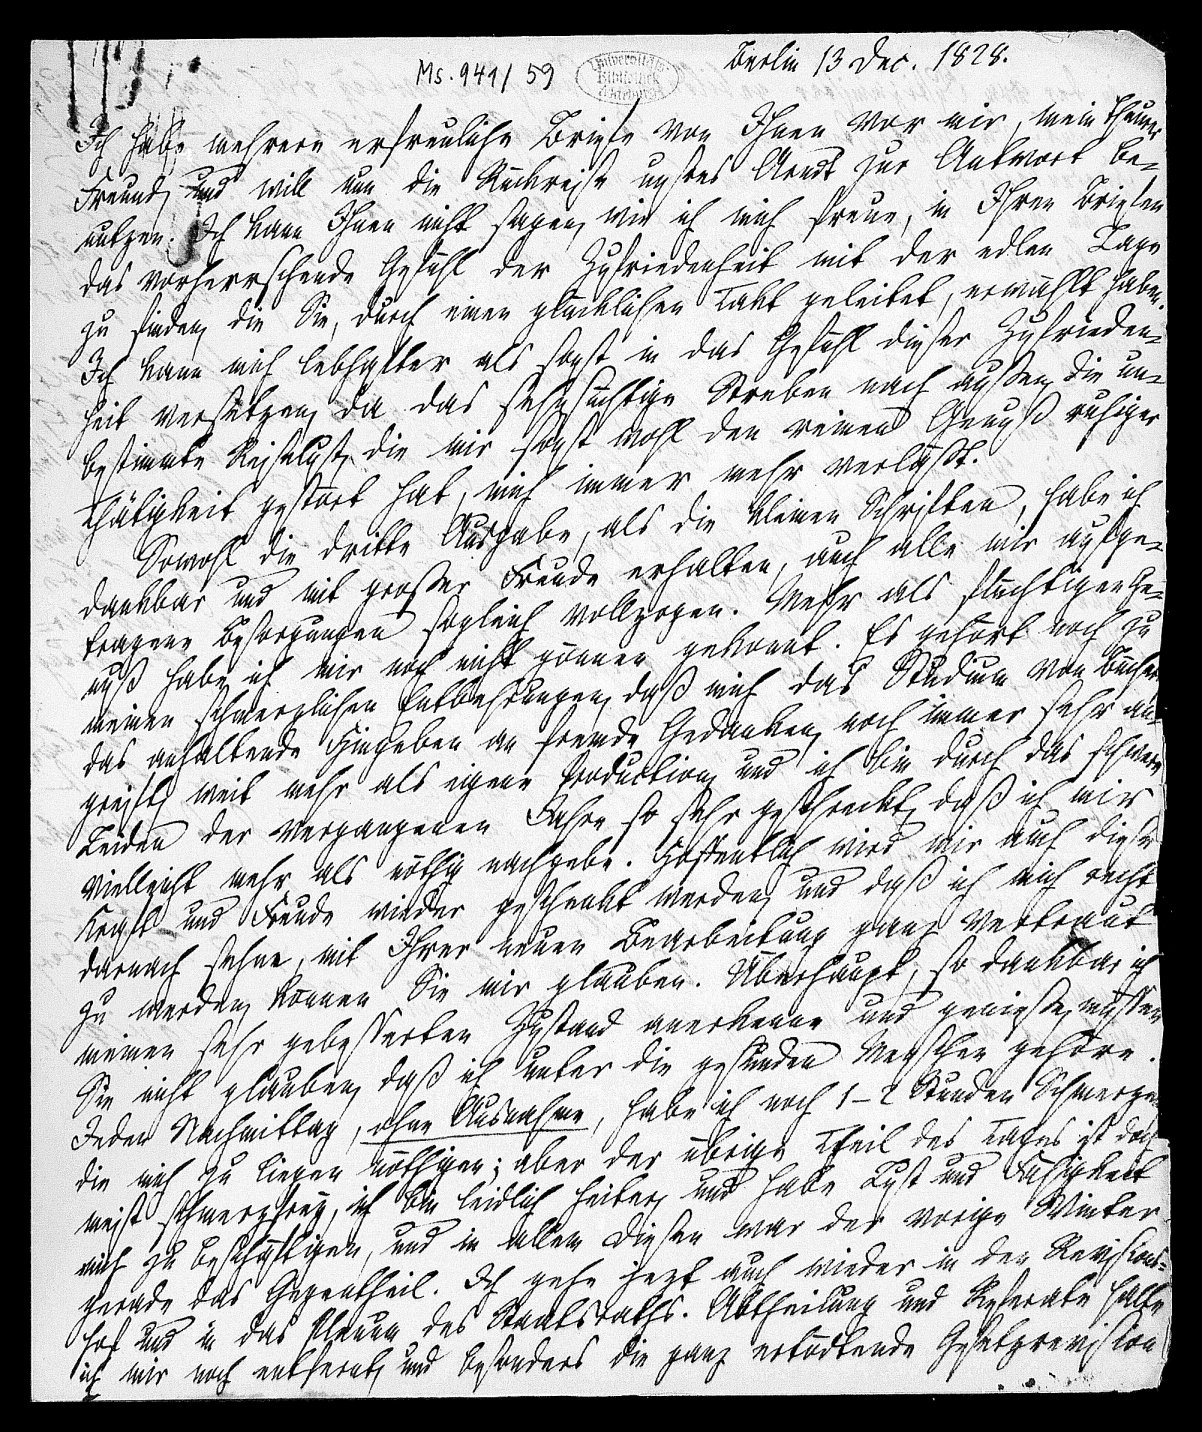 Ms. 941/59
Universitäts
Bibliothek
Marburg
Berlin 13 Dec. 1828.
Ich habe mehrere erfreuliche Briefe von Ihnen vor mir, mein theurer
Freund, und will nun die Rückreise unsres Arndt zur Antwort be-
nutzen. Ich kann Ihnen nicht sagen, wie ich mich freue, in Ihren Briefen
das vorherrschende Gefühl der Zufriedenheit mit der edlen Lage
zu finden, die Sie, durch einen glücklichen Takt geleitet, erwählt haben.
Ich kann mich lebhafter als sonst in das Gefühl dieser Zufrieden-
heit versetzen, da das sehnsüchtige Streben nach außen, die un-
bestimmte Reiselust, die mir sonst wohl den reinen Genuß ruhiger
Thätigkeit gestört hat, mich immer mehr verläßt.
Sowohl die dritte Ausgabe, als die kleinen Schriften, habe ich
dankbar und mit großer Freude erhalten, auch alle mir aufge-
tragene Besorgungen sogleich vollzogen. Mehr als flüchtigen Ge-
nuß habe ich mir noch nicht gönnen gekonnt. Es gehört noch zu
meinen schmerzlichen Entbehrungen, daß mich das Studium von Büchern
das anhaltende Hingeben an fremde Gedanken, noch immer sehr an-
greift, weit mehr als eigene Production, und ich bin durch das schwere
Leiden der vergangenen Jahre so sehr geschreckt, daß ich mir
vielleicht mehr als nöthig nachgebe. Hoffentlich wird mir auch diese
Kraft und Freude wieder geschenkt werden, und daß ich mich recht
darnach sehne, mit Ihrer neuen Bearbeitung ganz vertraut
zu werden, können Sie mir glauben. Überhaupt, so dankbar ich
meinen sehr gebesserten Zustand anerkenne und genieße, müssen
Sie nicht glauben, daß ich unter die gesunden Menschen gehöre.
Jeden Nachmittag, ohne Ausnahme, habe ich noch 1–2 Stunden Schmerzen
die mich zu liegen nöthigen; aber der übrige Theil des Tages ist doch
meist schmerzfrey, ich bin leidlich heiter, und habe Lust und Fähigkeit
mich zu beschäftigen, und in allem diesen war der vorige Winter
gerade das Gegentheil. Ich gehe jezt auch wieder in den Revisions-
hof und in das Plenum des Staatsraths. Abtheilung und Referate halte
ich mir noch entfernt, und besonders die ganz ertödtende Gesetzrevision